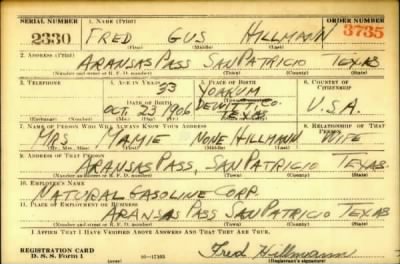 SERIAL NUMBER 1. NAME (Print) ORDER NUMBER
2330 FRED GUS HILLMANN 3735
(First) (Middle) (Last)
2. ADDRESS (Print)
ARANSAS PASS SAN PATRICIO TEXAS
(Number and street or R. F. D. number) (Town) (County) (State)
3. TELEPHONE 4. AGE IN YEARS 5. PLACE OF BIRTH 6. COUNTRY OF CITIZENSHIP
33 YOAKUM
DATE OF BIRTH DEWITT CO. U.S.A.
OCT. 23 1906 TEXAS
(Exchange) (Number) (Mo.) (Day) (Yr.) (State or country)
7. NAME OF PERSON WHO WILL ALWAYS KNOW YOUR ADDRESS 8. RELATIONSHIP OF THAT PERSON
MRS MAMIE NONE HILLMANN WIFE
(Mr., Mrs., Miss) (First) (Middle) (Last)
9. ADDRESS OF THAT PERSON
ARANSAS PASS, SAN PATRICIO TEXAS
(Number and street or R. F. D. number) (Town) (County) (State)
10. EMPLOYER'S NAME
NATURAL GASOLINE CORP.
11. PLACE OF EMPLOYMENT OR BUSINESS
ARANSAS PASS SAN PATRICIO TEXAS
(Number and street or R. F. D. number) (Town) (County) (State)
I AFFIRM THAT I HAVE VERIFIED ABOVE ANSWERS AND THAT THEY ARE TRUE.
REGISTRATION CARD
D. S. S. Form 1 16—17105 Fred Hillmann
(Registrant's signature)